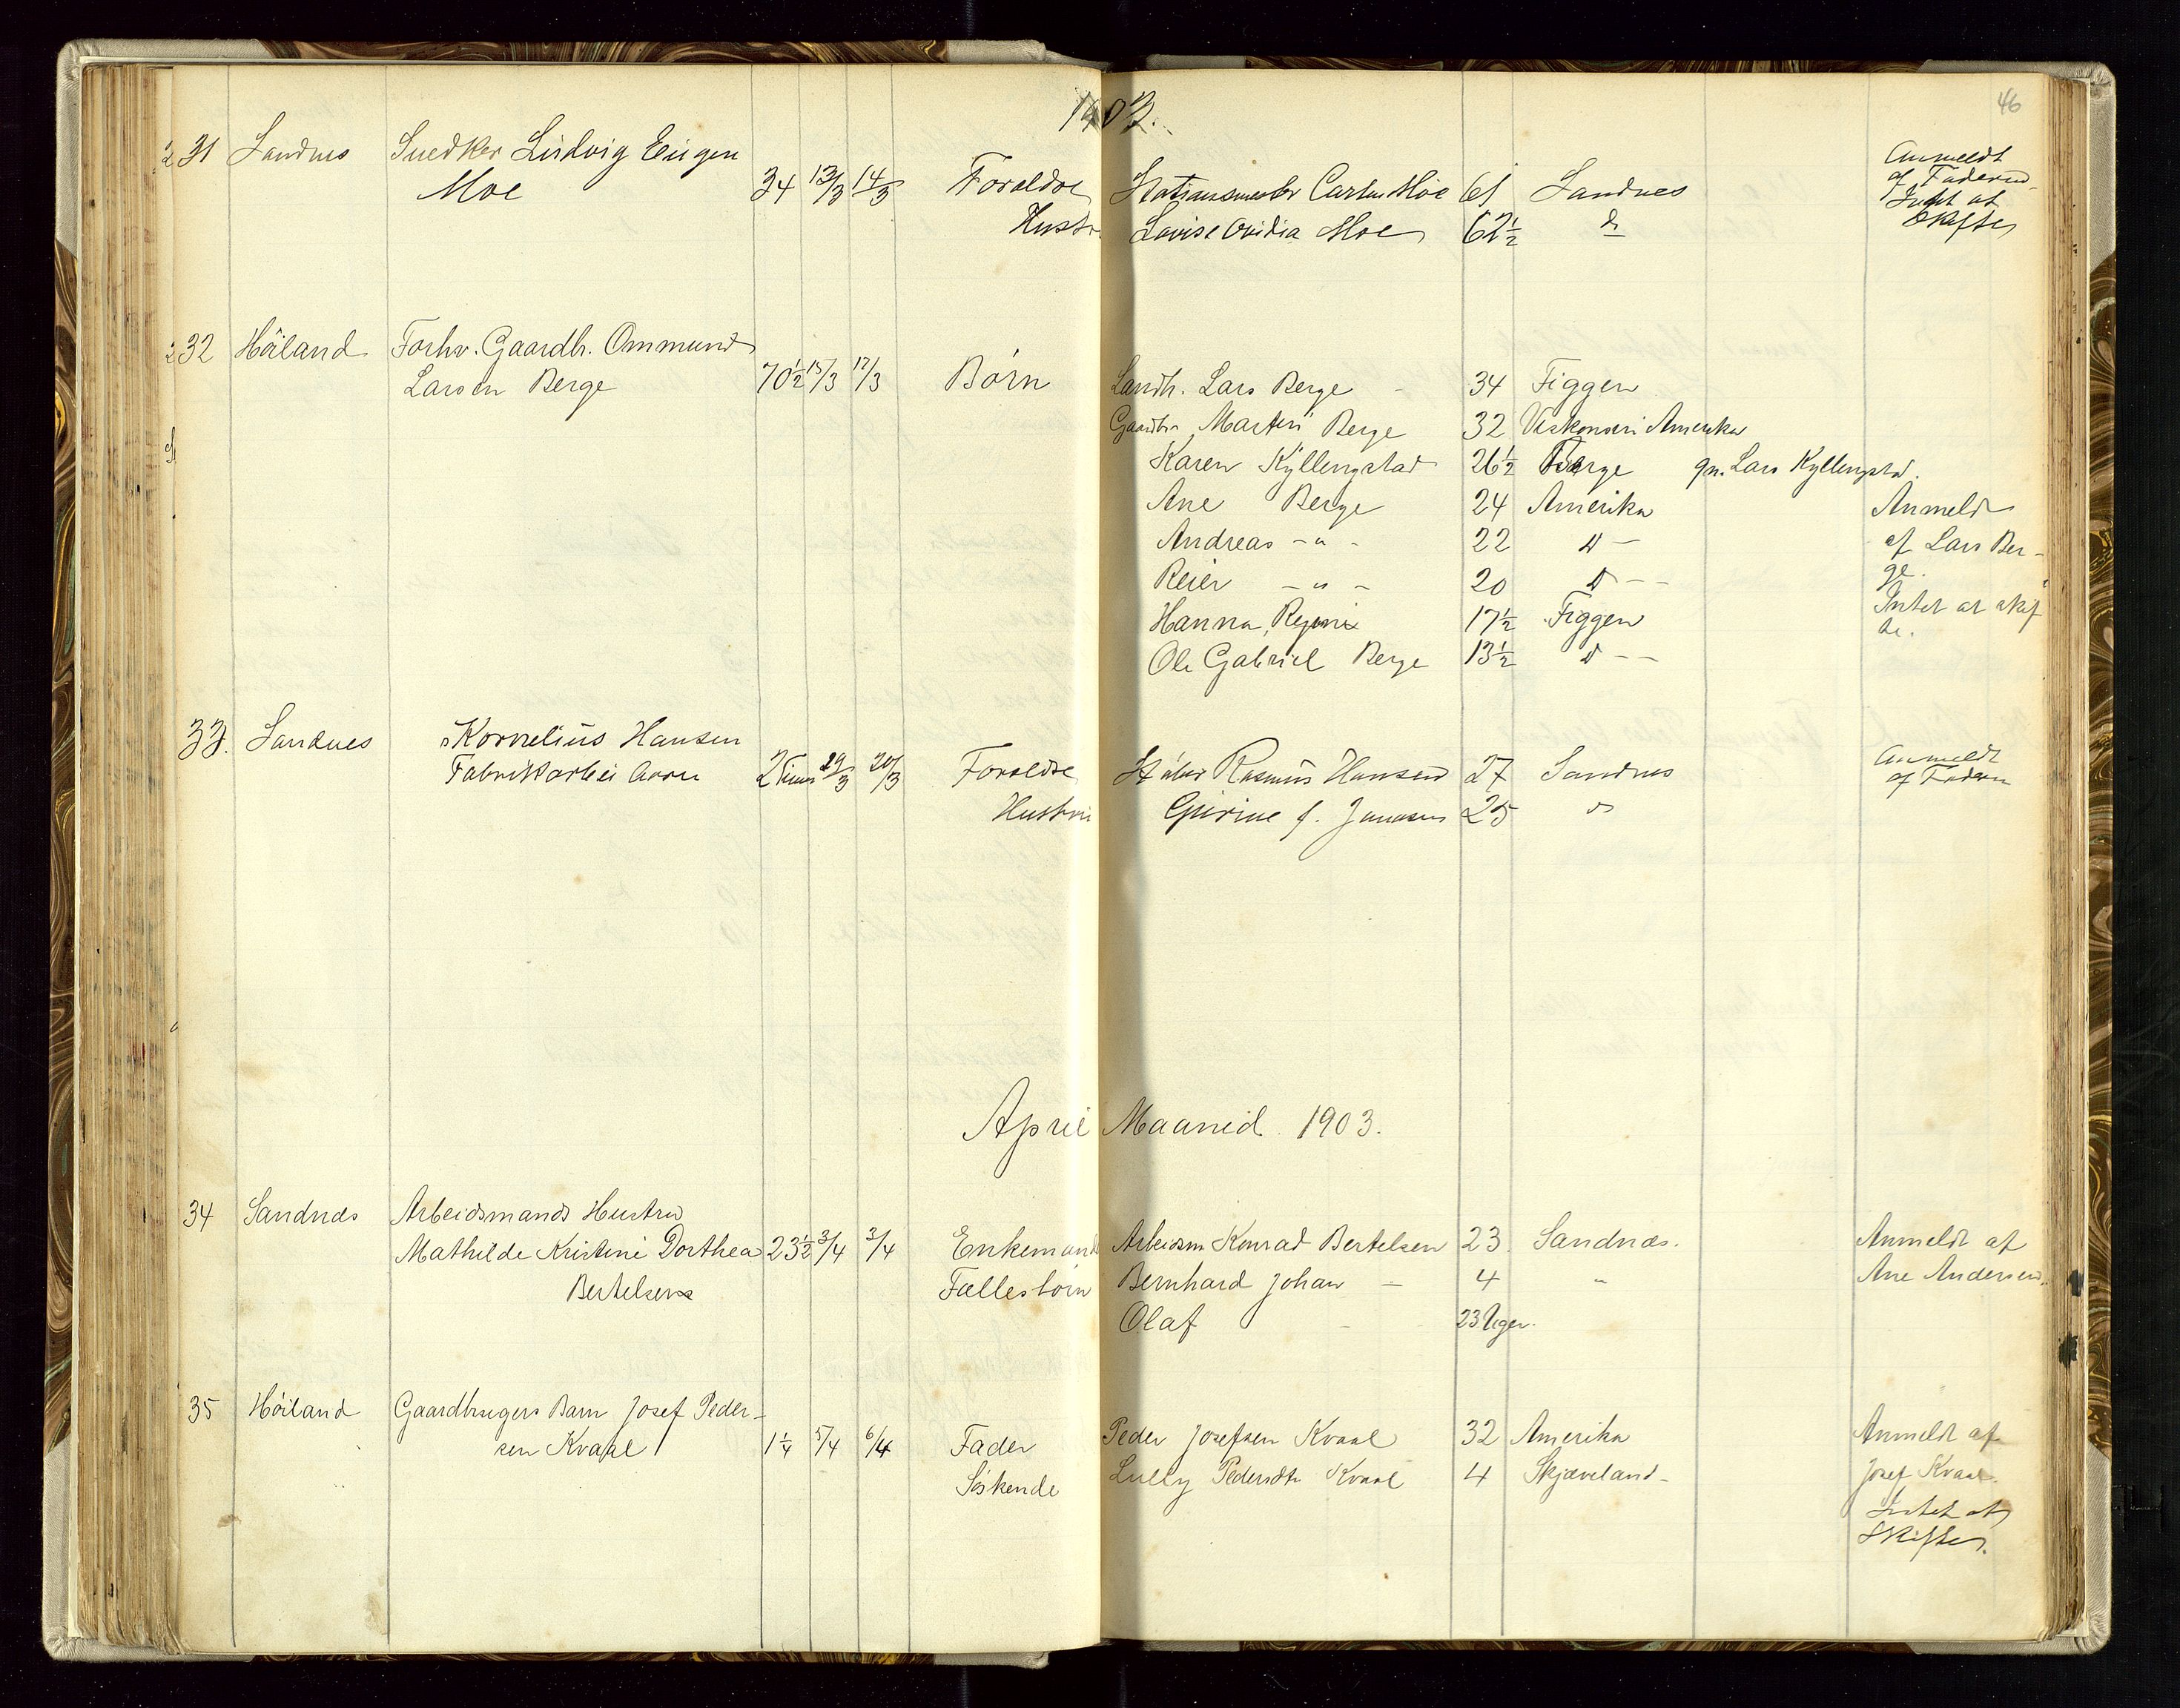 1903.
46
31 Sandnes Snedker Ludvig Eugen
Moe 34 13/3 14/3 Forældre Stationsmester Carten Moe 61 Sandnes
Hustr. Lovise Ovidia Moe 62½ do
Anmeldt
af Faderen
Intet at
Skifte
32 Höiland Forhv. Gaardb. Ommund
Larsen Berge 70½ 15/3 17/3 Börn Landh. Lars Berge 34 Figgen
Gaardbr. Martin Berge 32 Viskonsin Amerika
Karen Kyllingstad 26½ Berge gm. Lars Kyllingstad.
Ane Berge 24 Amerika
Andreas - " - 22 D -
Reier - " - 20 D - -
Hanna 17½ Figgen
Ole Gabriel Berge 13½ D - -
Anmeldt
af Lars Ber-
ge.
Intet at skif
te.
33. Sandnes Kornelius Hansen
Fabrikarbei barn 2 Timer 29/3 Forældre Rasmus Hansen 27 Sandnes
Hustru Gurine f. Jonasen 25 do
Anmeldt
af Faderen
April Maaned 1903.
34 Sandnæs Arbeidsmands Hustru
Mathilde Kristine Dorthea 23½ 3/4 3/4 Enkemand Arbeidsm Konrad Bertelsen 23 Sandnæs.
Bertelsen Fællesbörn Bernhard Johan - 4 "
Olaf - 23 Uger.
Anmeldt af
Ane Andersen.
35 Höiland Gaardbrugers Barn Josef Peder-
sen Kvaal 1¼ 5/4 6/4 Fader Peder Josefsen Kvaal 32 Amerika
Söskende Lully Pedersdtr Kvaal 4 Skjæveland-
Anmeldt af
Josef Kvaal.
Intet at
Skifte.